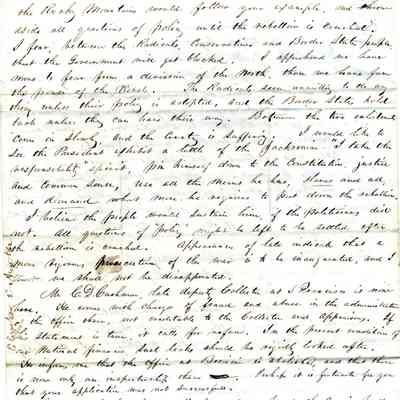 the Rocky Mountains would follow your example, and throw
aside all questions of policy until the rebellion is crushed.
I fear, between the Radicals, Conservatives and Border State people,
that the Government will get Checked. I apprehend we have
more to fear from a division of the North, than we have from
the power of the Rebels. The Radicals seem unwilling to do any
thing unless their policy is adopted, and the Border States hold
back unless they can have their way. Between the two
Comes in and the Country is suffering. I would like to
see the President exhibit a little of the Jacksonian "I take the
responsibility spirit", pin himself down to the Constitution, justice
and Common Sense, use all the means he has, slaves and all,
and demand what more he requires to put down the rebellion.
I believe the people would sustain him, if the politicians did
not. All questions of policy ought to be left to be settled after
the rebellion is crushed. Appearances of late indicated that a
more vigorous prosecution of the war is to be inaugurated, and I
we shall not be disappointed.
Mr C. D. Cushman, late deputy Collector at is now
here. He comes with charges of fraud and abuse in the administration
of the office there, not creditable to the Collector and Appraisers. If
his statement is true, it calls for reform. In the present condition of
our National finances, such leaks should be rigidly looked after.
me that the office at is abolished, and that there
is now only an inspectorship there. Perhaps it is fortunate for you
that your application was not successful.